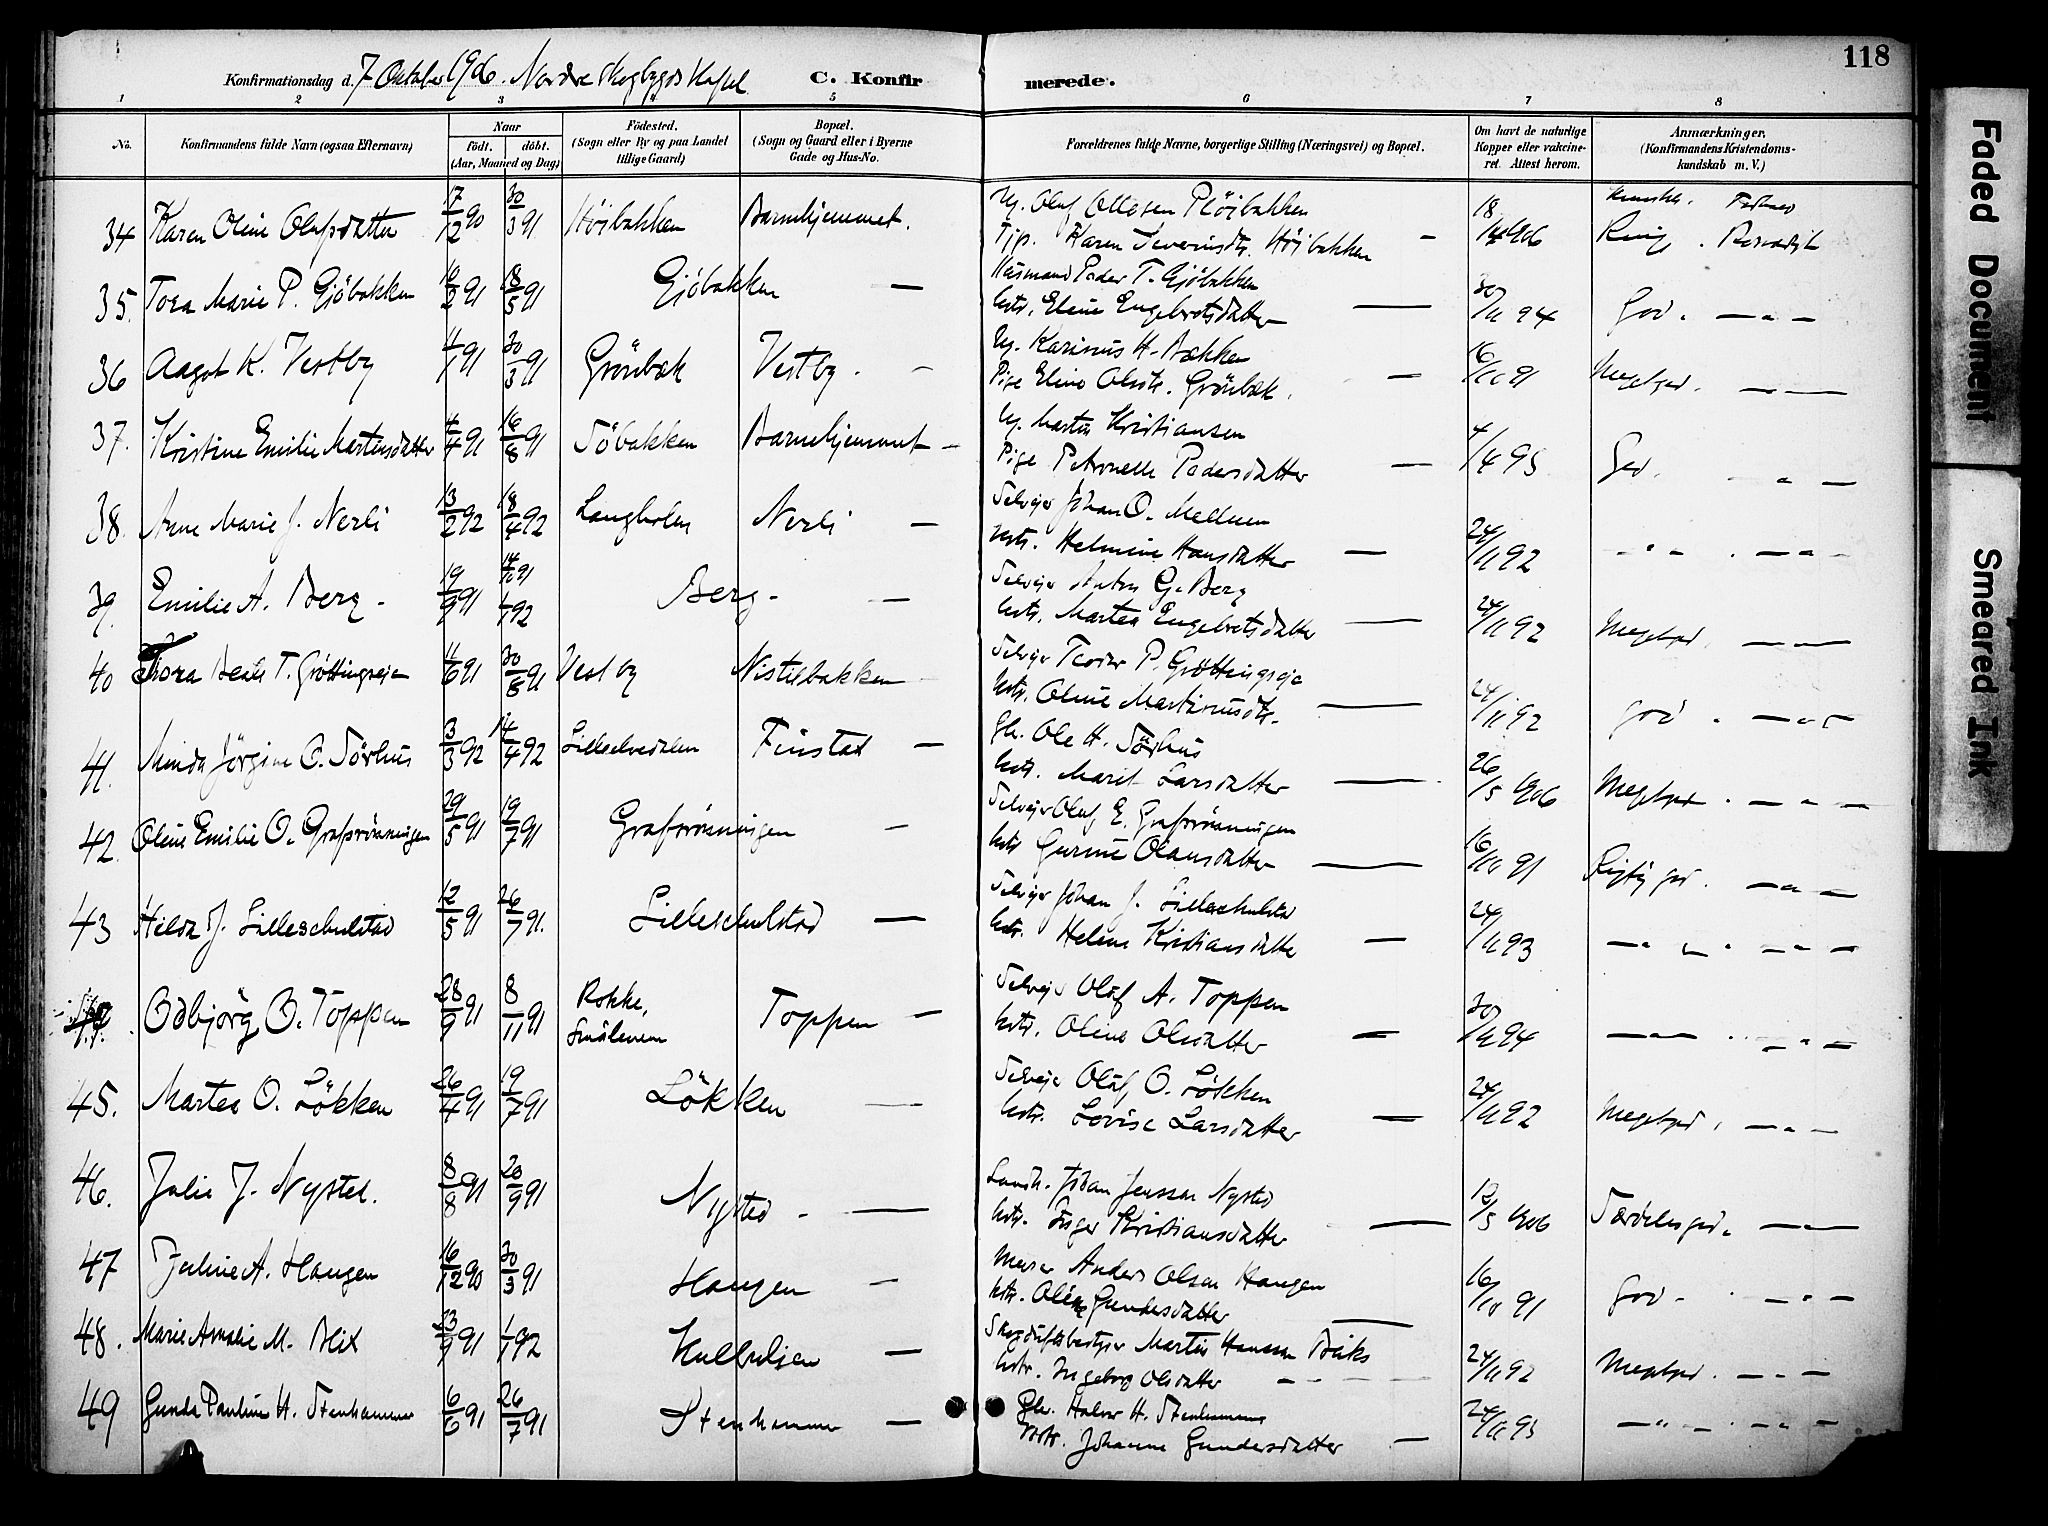 118
Konfirmationsdag d. 7 Oktober 1906. Nordre Skogbygds Kapel C. Konfirmerede.
1 2 3 4 5 6 7 8
No. Konfirmandens fulde Navn (ogsaa Efternavn) Naar født. døbt. (Aar, Maaned og Dag) Fødested. (Sogn eller By og paa Landet tillige Gaard) Bopæl. (Sogn og Gaard eller i Byerne Gade og Hus-No. Forældrenes fulde Navne, borgerlige Stilling (Næringsvei) og Bopæl. Om havt de naturlige Kopper eller vaccineret. Attest herom. Anmærkninger. (Konfirmandens Kristendomskundskab m. V.)
34 Karen Oline Olafsdatter 17/12 90 30/3 91 Höibakken Barnehjemmet. Ug. Olaf Ottesen
Pige Karen Severinsdtr. Höibakken — 18/4 1906
35. Tora Marie P. Gjöbakken 10/2 91 18/5 91 Gjöbakken — Husmand Peder T. Gjöbakken
hstr. Eline Engebretsdatter — 30/11 94 God. — " —
36 Aagot K. Vestby 4/1 91 30/3 91 Grönbæk Vestby. — Ug. Karinus H. Bækken
Pige Eline Olsdtr. Grönbæk. — 16/10 91 Megetgod. — —
37. Kristine Emilie Martensdatter 4/4 91 16/8 91 Söbakken Barnehjemmet — Ug. Martin Kristiansen
Pige Petronelle Pedersdatter — 4/4 95 God. — " —
38. Anne Marie J. Nerli 13/2 92 18/4 92 Langholen Nerli — Selveier Johan O. Mellum
hstr. Helmine Hansdatter — 24/11 92 — " — . — " —
39. Emilie A. Berg. 19/9 91 14/10 91 1/1 92 Berg. — Selveier Anton G. Berg
hstr. Martea Engebretsdatter — 24/11 92 Megetgod. — —
40 Thora Beate T. Gröttingseie 11/6 91 30/8 91 Vestby Nistilbakken — Selveier Teodor P. Gröttingseie
hstr. Oline Martinusdtr. — 24/11 92 God . — " —
41. Minda Jörgine O. Sörhus 3/3 92 14/4 92 Lilleelvedalen Finstad — Gb. Ole H. Sörhus
hstr. Marit Larsdatter — 26/5 1906 Megetgod . — " —
42. Oline Emilie O. Grafsrönningen 29/5 91 19/7 91 Grafsrönningen — Selveier Oluf E. Grafsrönningen
hstr. Gurine Olausdatter — 16/10 91 Rigtig god. — " —
43 Hilda J. Lilleschulstad 12/5 91 26/7 91. Lilleschulstad — Selveier Johan J. Lilleschulstad
hstr. Helene Kristiansdatter — 24/11 93 — " — " — " —
Odbjörg O. Toppen 28/9 91 8/11 91 Rokke, Smålenene Toppen — Selveier Olaf A. Toppen
hstr. Oline Olsdatter — 30/11 94 — " — . — " —
45. Martea O. Lökken 26/4 91 19/7 91 Lökken — Selveier Oluf O. Lökken
hstr. Lovise Larsdatter — 24/11 92 Megetgod. — " —
46. Julie J. Nysted. 8/8 91 20/9 91 Nysted. — Landh. Johan Jensen Nysted
hstr. Inger Kristiansdatter — 12/5 1906 Særdelesgod. — —
47 Juline A. Haugen 16/12 90 30/3 91 Haugen — Murer Anders Olsen Haugen
hstr. Oline Gundersdatter — 16/10 91 God. — " —
48. Marie Amalie M. Blix 23/9 91 1/1 92 Kulbulien — Martin Hansen Bliks
hstr. Ingeborg Olsdatter — — 24/11 92 Megetgod. — " —
49 Gunda Pauline H. Stenhammer 6/6 91 26/7 91 Stenhammer — Gbr. Halvor H. Stenhammer
Hstr. Johanne Gundersdatter — 24/11 93 — " — . — " —
Faded Document
Smeared Ink